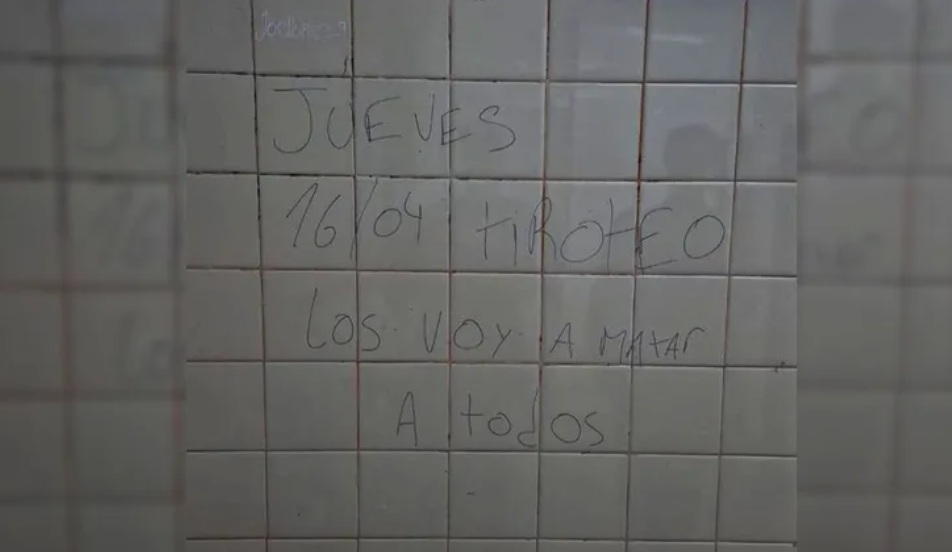 JUEVES
16/04 tiROtEO
LOS VOY A MAtAr
A todos